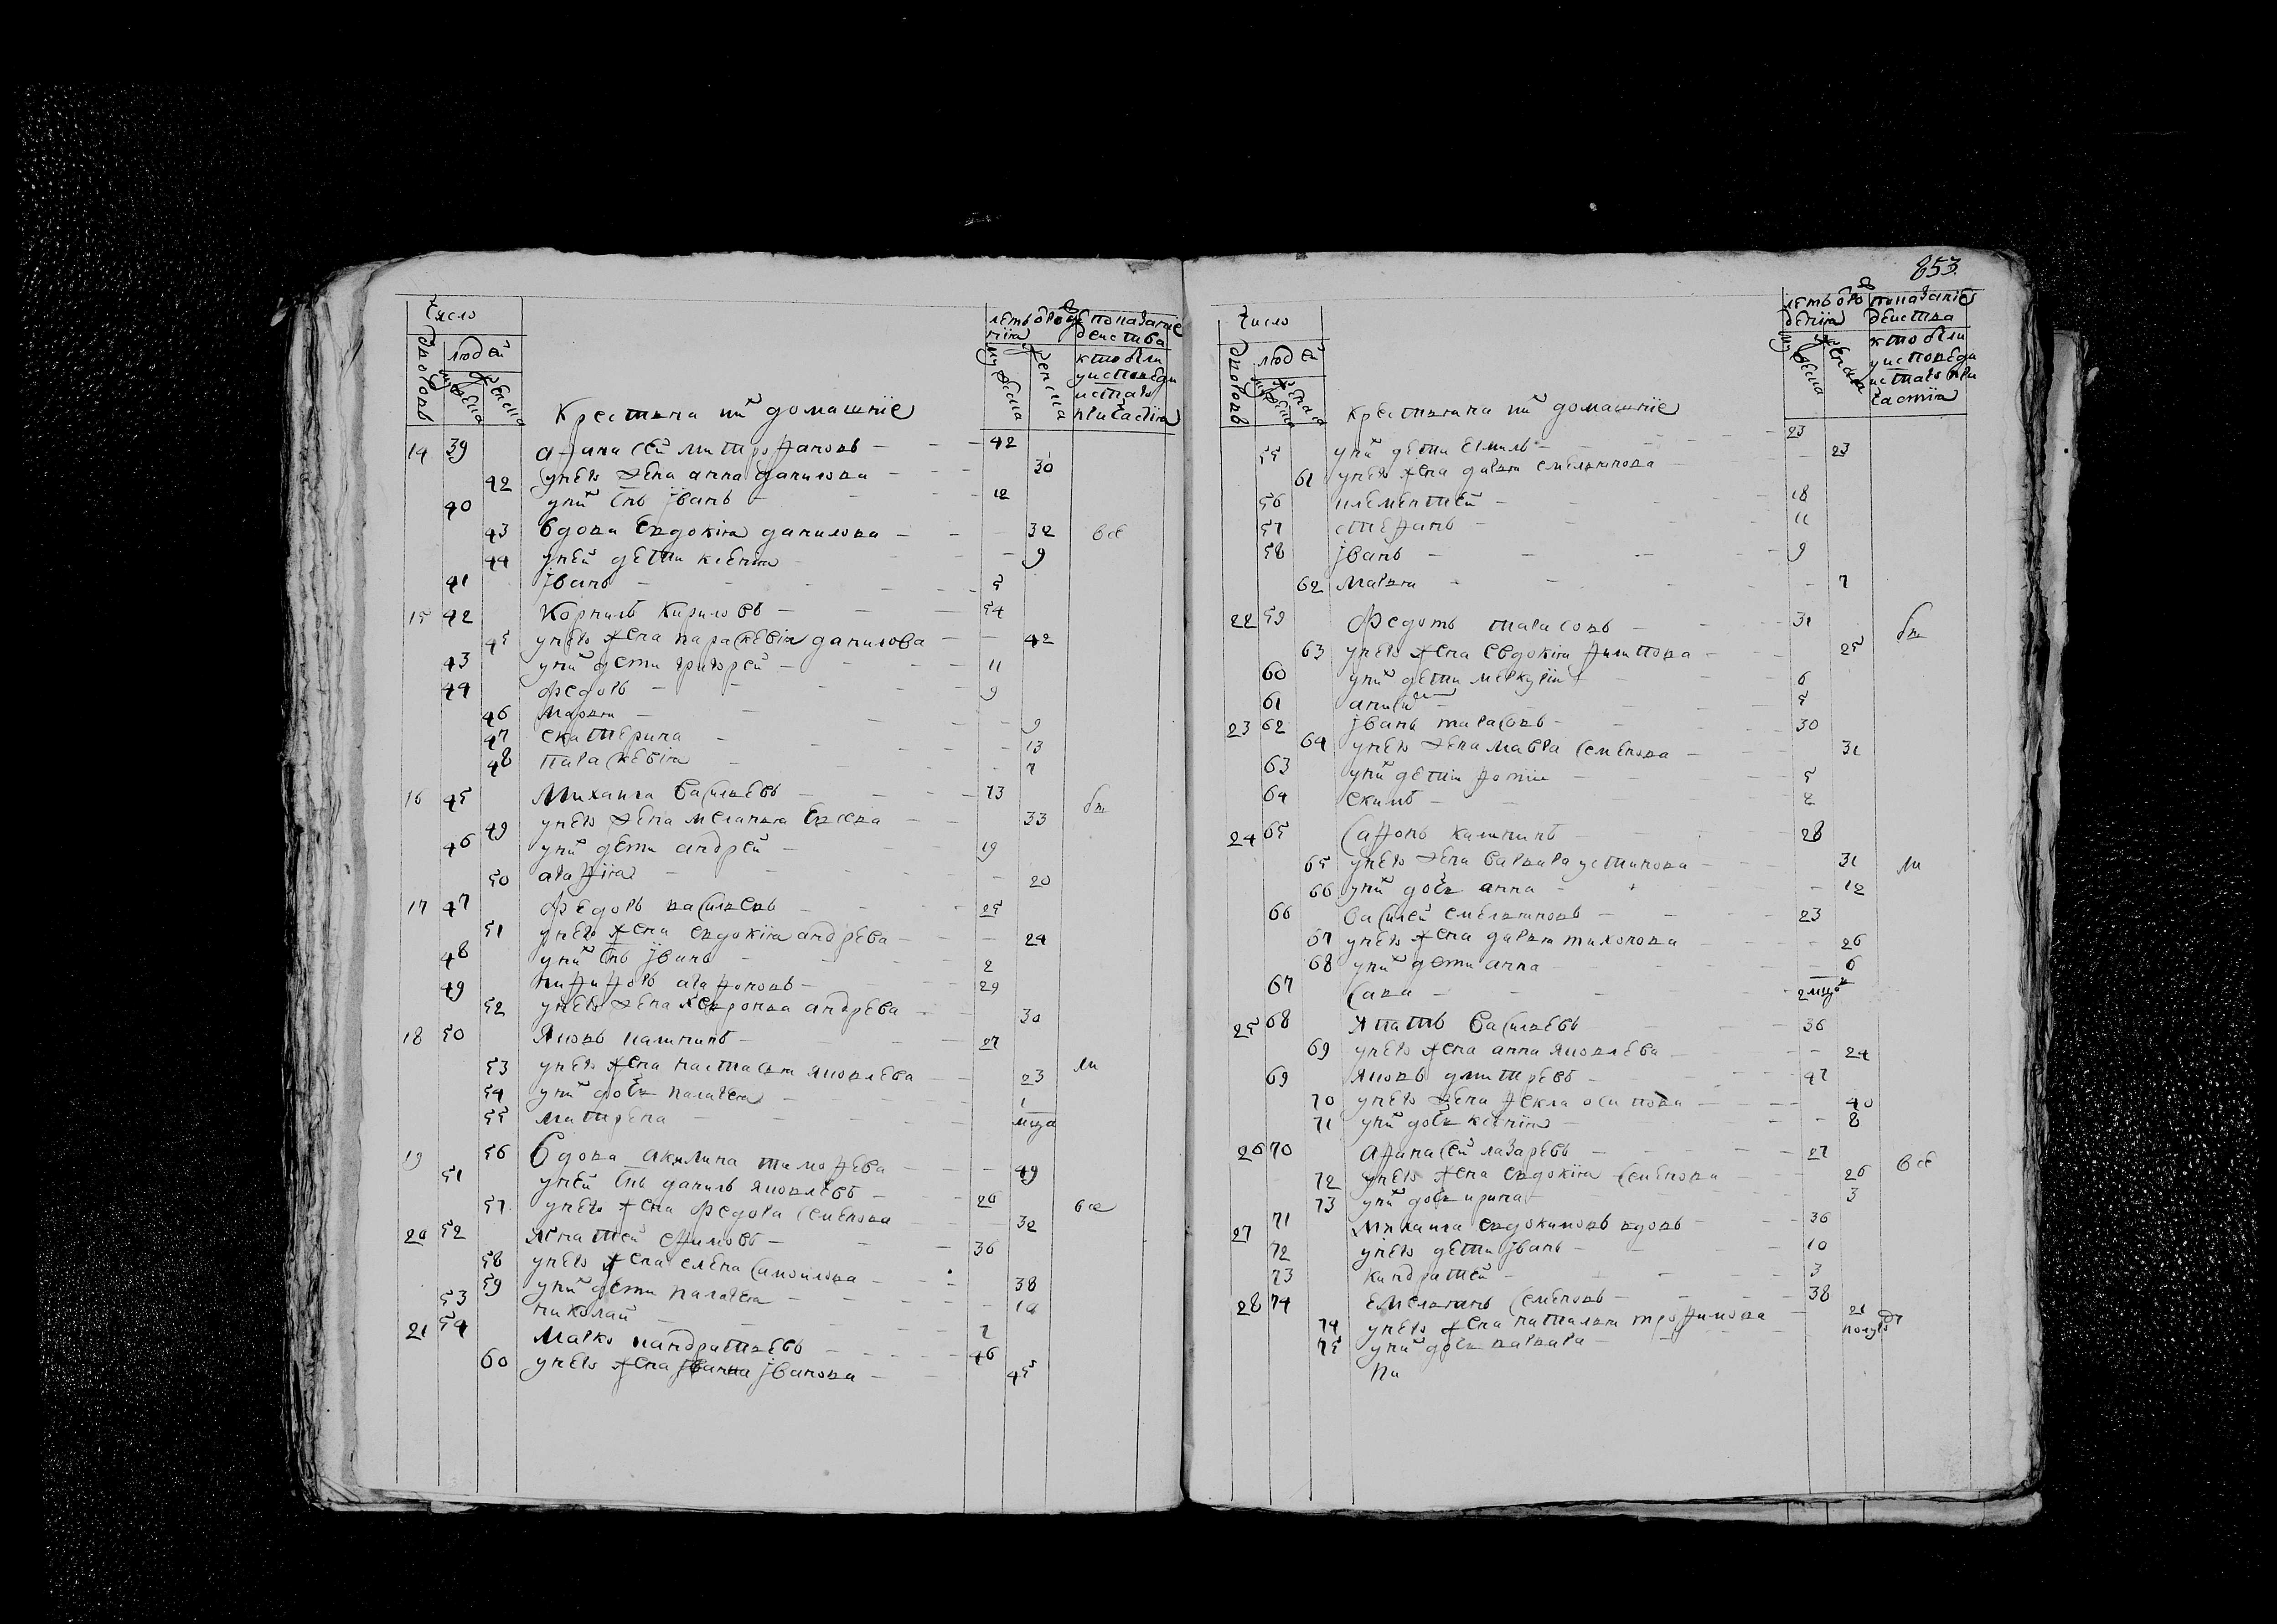 Число
дворовъ
людей
мужеска
женска
Крестьяна и их домашніе
летъ от рождения
мужеска
женска
показание действа кто были у исповеди и с̃таго причастия
14 39 Афанасей Митрофановъ 42
42 у него жена Анна Данилова 30
40 у них сnъ Іванъ 12
43 Вдова Евдокіия Данилова 32 все
44 у ней дети Ксения 9
41 Іванъ 5
15 42 Корнилъ Кириловъ 54
45 у него жена Параскевия Данилова 42
43 у них дети Григорей 11
44 Федоръ 9
46 Марья 9
47 Екатерина 13
48 Параскевия 7
16 45 Михаила Васильевъ 73
49 у него жена Меланья Евсева 33
46 у них дети Андрей 19
50 Агафия 20
17 47 Федоръ Васильевъ 25
51 у него жена Евдокия Андрева 24
48 у них сnъ Іванъ 2
49 Никифоръ Агафоновъ 29
52 у него жена Хевронья Андрева 30
18 50 Яковъ Калининъ 27
53 у него жена Настасья Яковлева 23 ли
54 у них дочь Пелагея 1
55 Матрена мца
19 56 Вдова Акилина Тимофева 49
51 у ней сnъ Данилъ Яковлевъ 26
57 у него жена Федора Семенова 32 все
20 52 Игнатей Ефимовъ 36
58 у него жена Елена Самойлова 38
59 у них дети Пелагея 10
53 Николай 7
21 54 Марко Кандратьевъ 46
60 у него жена Іванна Іванова 45
853
Число
дворовъ
людей
мужеска
женска
Крестьяна и их домашніе
летъ от рождения
мужеска
женска
показание действа кто были у исповеди и с̃таго причастия
55 у них дети Емиль 23
61 у него жена Дарья Емельянова 23
56 Клементей 18
57 Стефанъ 11
58 Іванъ 9
62 Марья 7
22 59 Федотъ Тарасовъ 31
63 у него жена Евдокия Филипова 25
60 у них дети Меркурии 6
61 5
23 62 Іванъ Тарасовъ 30
64 у него жена Мавра Семенова 31
63 у них дети Фотии 5
64 Екимъ 2
24 65 Сафонъ Калининъ 28
65 у него жена Варвара Устинова 31 ли
66 у них дочь Анна 12
66 Василей Емельяновъ 23
67 у него жена Дарья Тихонова 26
68 у них дети Анна 6
67 Сава 2 мцъ
25 68 Ипатъ Васильевъ 36
69 у него жена Анна Яковлева 24
69 Яковъ Дмитревъ 47
70 у него жена Фекла Осипова 40
71 у них дочь Ксения 8
26 70 Афанасей Лазаревъ 27
72 у него жена Евдокия Семенова 26 все
73 у них дочь Ирина 3
27 71 Михаила Евдокимовъ вдовъ 36
72 у него дети Іванъ 10
73 Кандратей 3
28 74 Емельянъ Семеновъ 38
74 у него жена Наталья Трофимова 21
75 у них дочь Варвара полуго
Ни